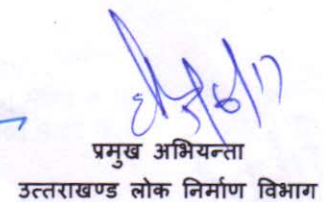 प्रमुख अभियन्ता
उत्तराखण्ड लोक निर्माण विभाग